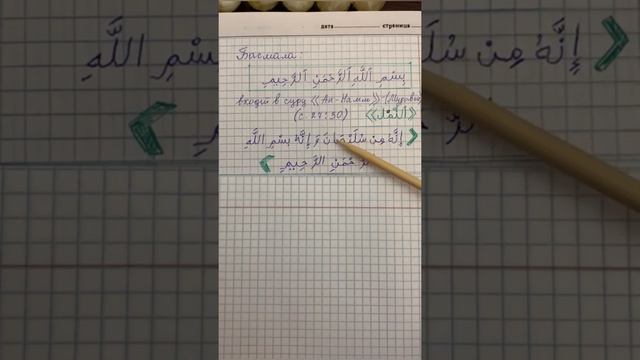 дата страница
Басмала:
بِسْمِ ٱللَّهِ ٱلرَّحْمَنِ ٱلرَّحِيمِ
входит в суру «Ан-Намль» (Муравьи)
(с 27:30) «اَلنَّمْل»
إِنَّهُ مِن سُلَيْمَانَ وَ إِنَّهُ بِسْمِ اللَّهِ
الرَّحْمَنِ الرَّحِيمِ